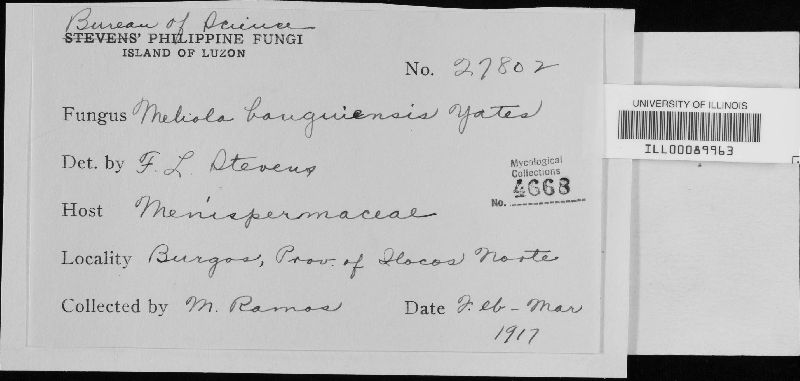 Bureau of Science
STEVENS' PHILIPPINE FUNGI
ISLAND OF LUZON
No. 27802
Fungus Meliola banguiensis Yates
Det. by F. L. Stevens
Mycological
Collections
No. 4668
Host Menispermaceae
Locality Burgos, Prov. of Ilocos Norte
Collected by M. Ramos
Date Feb - Mar
1917
UNIVERSITY OF ILLINOIS
ILL00089963